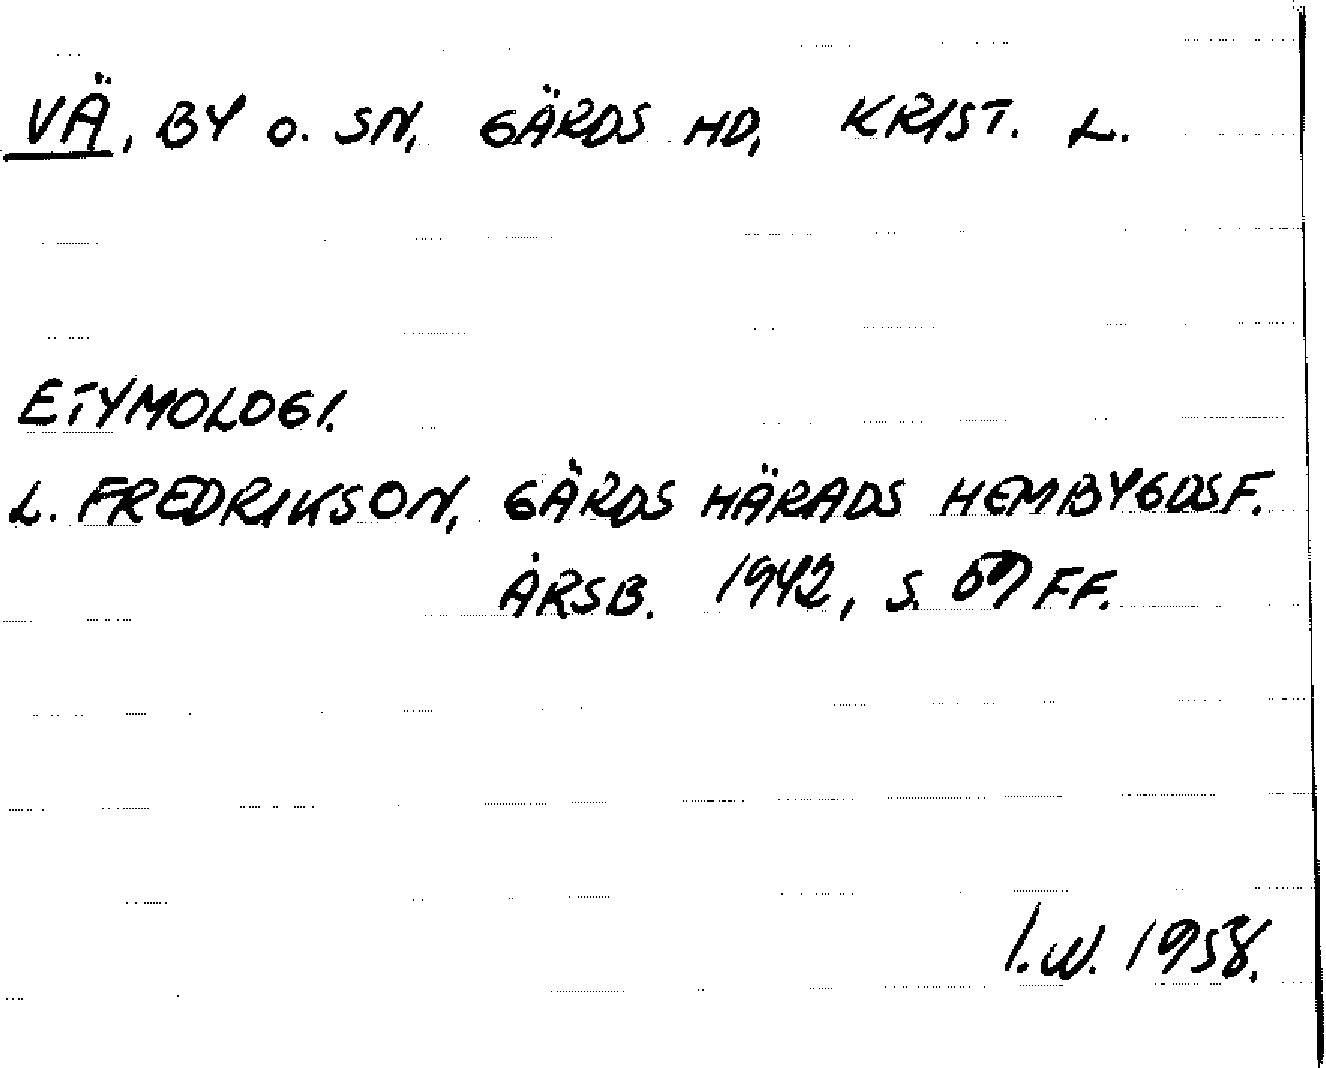 VÄ, BY o. SN, GÄRDS HD, KRIST. L.
ETYMOLOGI.
L. FREDRIKSON, GÄRDS HÄRADS HEMBYGDSF.
ÅRSB. 1942, S. FF.
I.W. 1958.